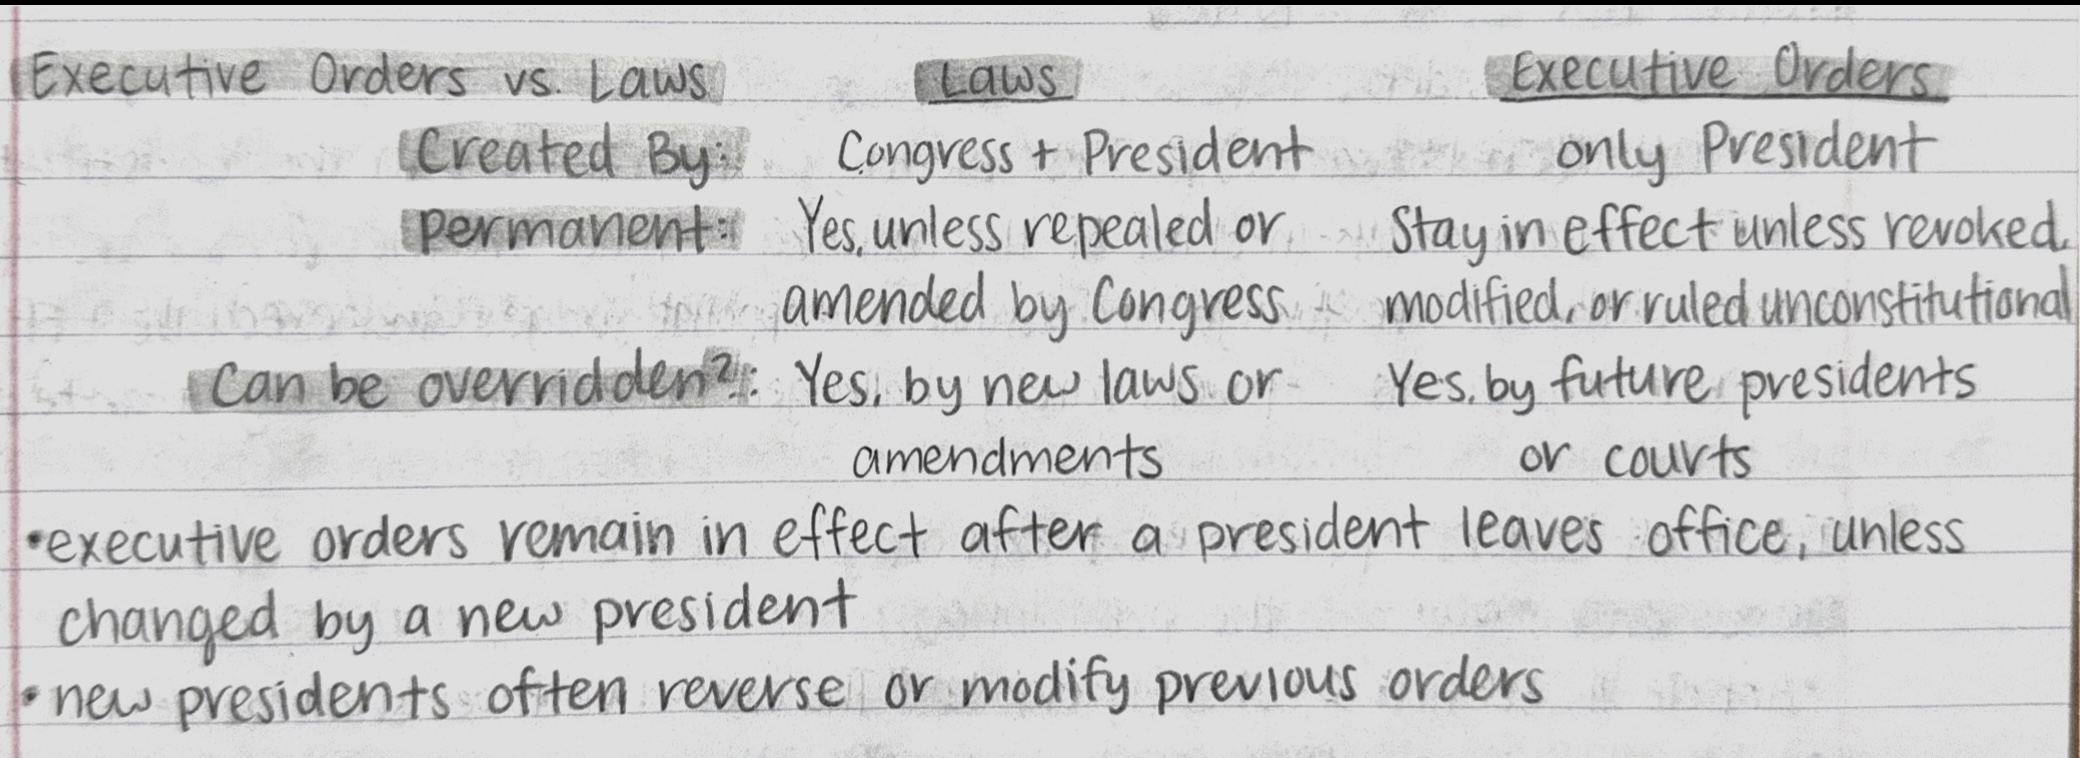 Executive Orders vs. Laws Laws Executive Orders
Created By: Congress + President only President
permanent: Yes, unless repealed or Stay in effect unless revoked,
amended by Congress modified, or ruled unconstitutional
Can be overridden?: Yes, by new laws or Yes, by future presidents
amendments or courts
•executive orders remain in effect after a president leaves office, unless
changed by a new president
•new presidents often reverse or modify previous orders